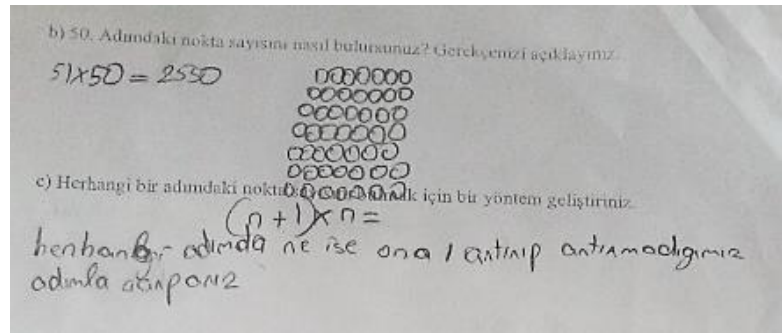 b) 50. Adımdaki nokta sayısını nasıl bulursunuz? Gerekçenizi açıklayınız.
51x50 = 2550
c) Herhangi bir adımdaki nokta için bir yöntem geliştiriniz.
(n+1)xn=
adımda ne ise ona 1 artırıp
adımla